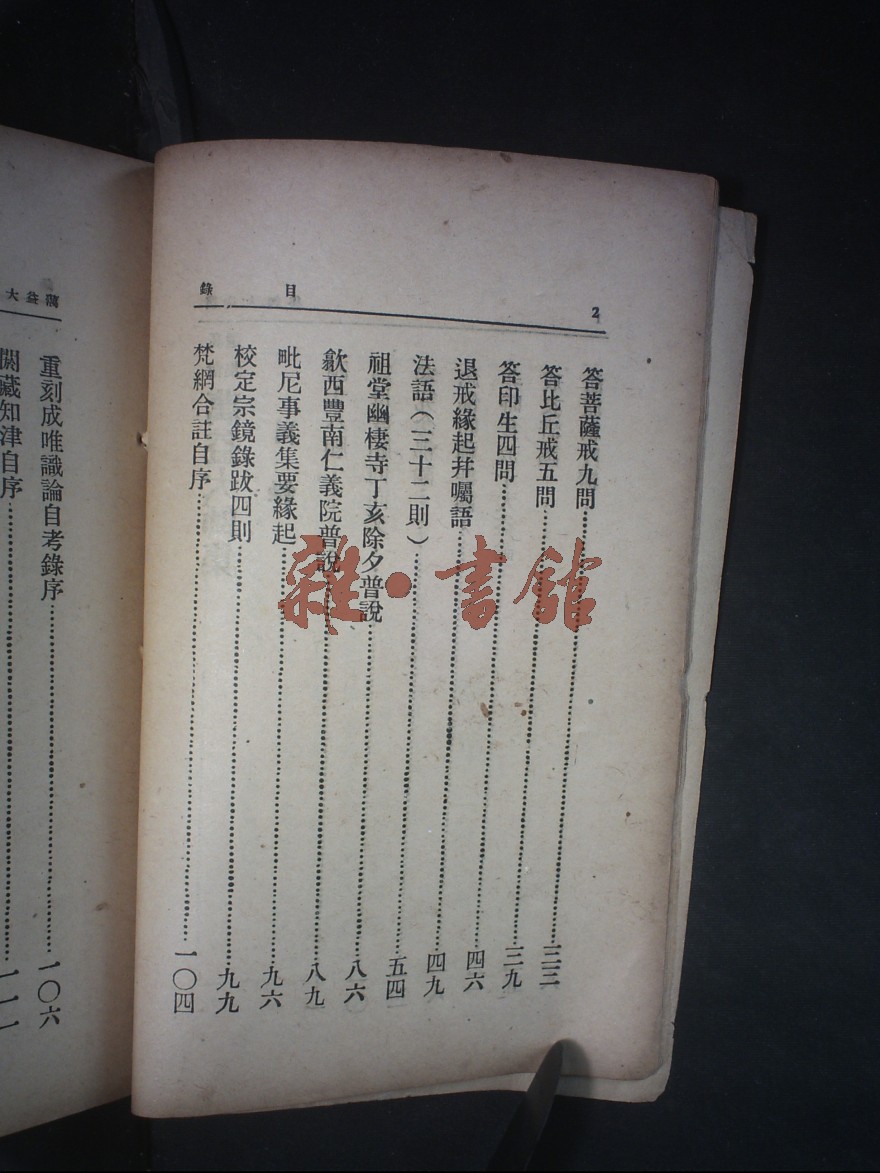 2 目錄
答菩薩戒九問……三三
答比丘戒五問……三九
答印生四問……四六
退戒緣起并囑語……四九
法語（三十二則）……五四
祖堂幽棲寺丁亥除夕普說……八六
歙西豐南仁義院普說……八九
毗尼事義集要緣起……九六
校定宗鏡錄跋四則……九九
梵網合註自序……一〇四
蕅益大
重刻成唯識論自考錄序……一〇六
閱藏知津自序……一一一
雜·書館